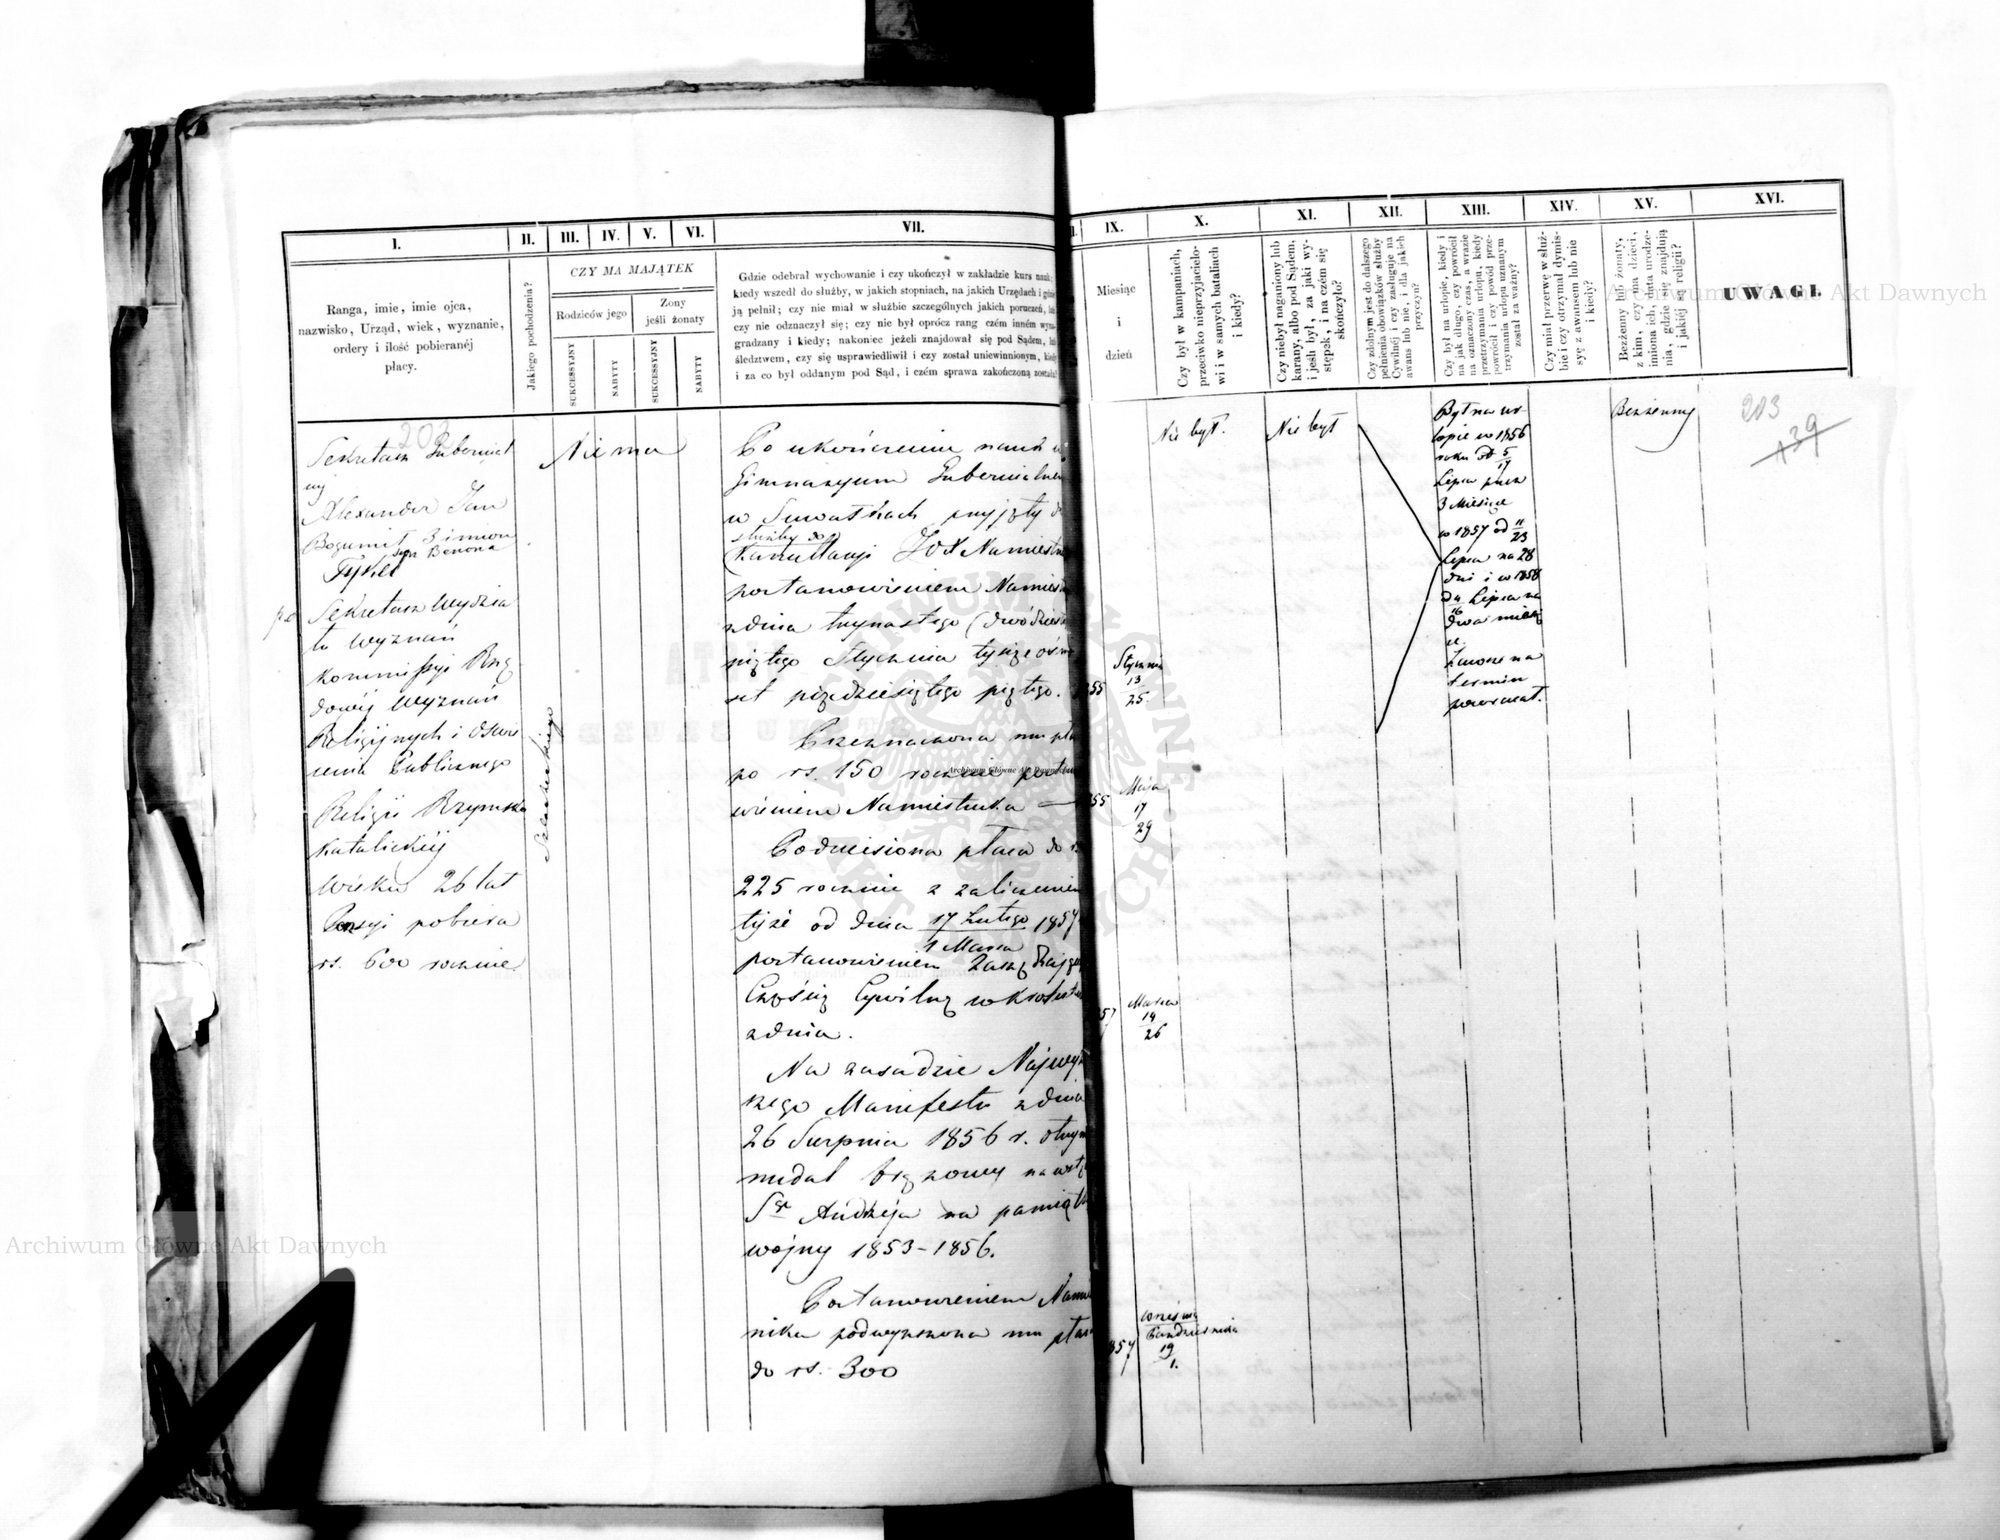 I.
II.
III.
IV.
V.
VI.
VII.
IX.
X.
XI.
XII.
XIII.
XIV.
XV.
XVI.
Ranga, imie, imie ojca,
nazwisko, Urząd, wiek, wyznanie,
ordery i ilość pobieranéj
płacy.
Jakiego pochodzenia?
CZY MA MAJĄTEK
Rodziców jego
Żony
jeśli żonaty
SUKCESSYJNY
NABYTY
SUKCESSYJNY
NABYTY
Gdzie odebrał wychowanie i czy ukończył w zakładzie kurs nauk;
kiedy wszedł do służby, w jakich stopniach, na jakich Urzędach i gdzie
ją pełnił; czy nie miał w służbie szczególnych jakich poruczeń, lub
czy nie odznaczył się; czy nie był oprócz rang czém inném wyna-
gradzany i kiedy; nakoniec jeżeli znajdował się pod Sądem, lub
śledztwem, czy się usprawiedliwił i czy został uniewinnionym, kiedy
i za co był oddanym pod Sąd, i czém sprawa zakończoną została?
Miesiąc
i
dzień
Czy był w kampaniach,
przeciwko nieprzyjacielo-
wi i w samych bataliach
i kiedy?
Czy niebył naganiony lub
karany, albo pod Sądem,
i jeśli był, za jaki wy-
stępek, i na czém się
skończyło?
Czy zdolnym jest do dalszego
pełnienia obowiązków służby
Cywilnéj i czy zasługuje na
awans lub nie, i dla jakich
przyczyn?
Czy był na urlopie, kiedy i
na jak długo, czy powrócił
na oznaczony czas, a wrazie
przetrzymania urlopu, kiedy
powrócił i czy powód prze-
trzymania urlopu uznanym
został za ważny?
Czy miał przerwę w służ-
bie i czy otrzymał dymis-
syę z awansem lub nie
i kiedy?
Bezżenny lub żonaty,
z kim, czy ma dzieci,
imiona ich, data urodze-
nia, gdzie się znajdują
i jakiéj są religii?
UWAGI.
203
Sekretarz Gubernial
ny
Alexander Jan
Bogumił 3 imion
syn Benona
p.o. Sekretarz Wydzia
łu Wyznań
Kommissyi Rzą
dowéj Wyznań
Religijnych i Oświe
cenia Publicznego
Religii Rzymsko
Katolickiéj
Wieku 26 lat
Pensyi pobiera
rs. 600 rocznie
Szlacheckiego
Nie ma
Po ukończeniu nauk w
Gimnazyum Gubernialnem
w Suwałkach przyjęty do
służby do
Kancellaryi JOX Namiestnika
postanowieniem Namiestnika
z dnia trzynastego (dwódziestego
piątego Stycznia tysiąc ośm
set pięćdziesiątego piątego.
1855
Stycznia
13
25.
Przeznaczona mu płaca
po rs. 150 rocznie postano
wieniem Namiestnika
1855
Maja
17
29
Podniesiona płaca do rs.
225 rocznie z zaliczeniem
tejże od dnia 17 Lutego 1857
1 Marca
postanowieniem Zarządzającego
Częścią Cywilną w Królestwie
z dnia.
57
Marca
14
26
Na zasadzie Najwyż
szego Manifestu z dnia
26 Sierpnia 1856 r. otrzymał
medal brązowy na wstędze
Sgo Andrzeja na pamiątkę
wojny 1853-1856.
Postanowieniem Namiest
nika podwyższona mu płaca
do rs. 300
1857
Września
Października
19
1.
Nie był.
Nie był
Był na ur-
lopie w 1856
roku od 5
17
Lipca przez
3 Miesiące
w 1857 od 11
23
Lipca na 28
dni i w 1858
od 4 Lipca na
16
dwa miesią
ce.
Zawsze na
termin
powracał.
Bezżenny
203
139
Archiwum Główne Akt Dawnych
Archiwum Główne Akt Dawnych
Archiwum Główne Akt Dawnych
ARCHIWUM GŁÓWNE AKT DAWNYCH